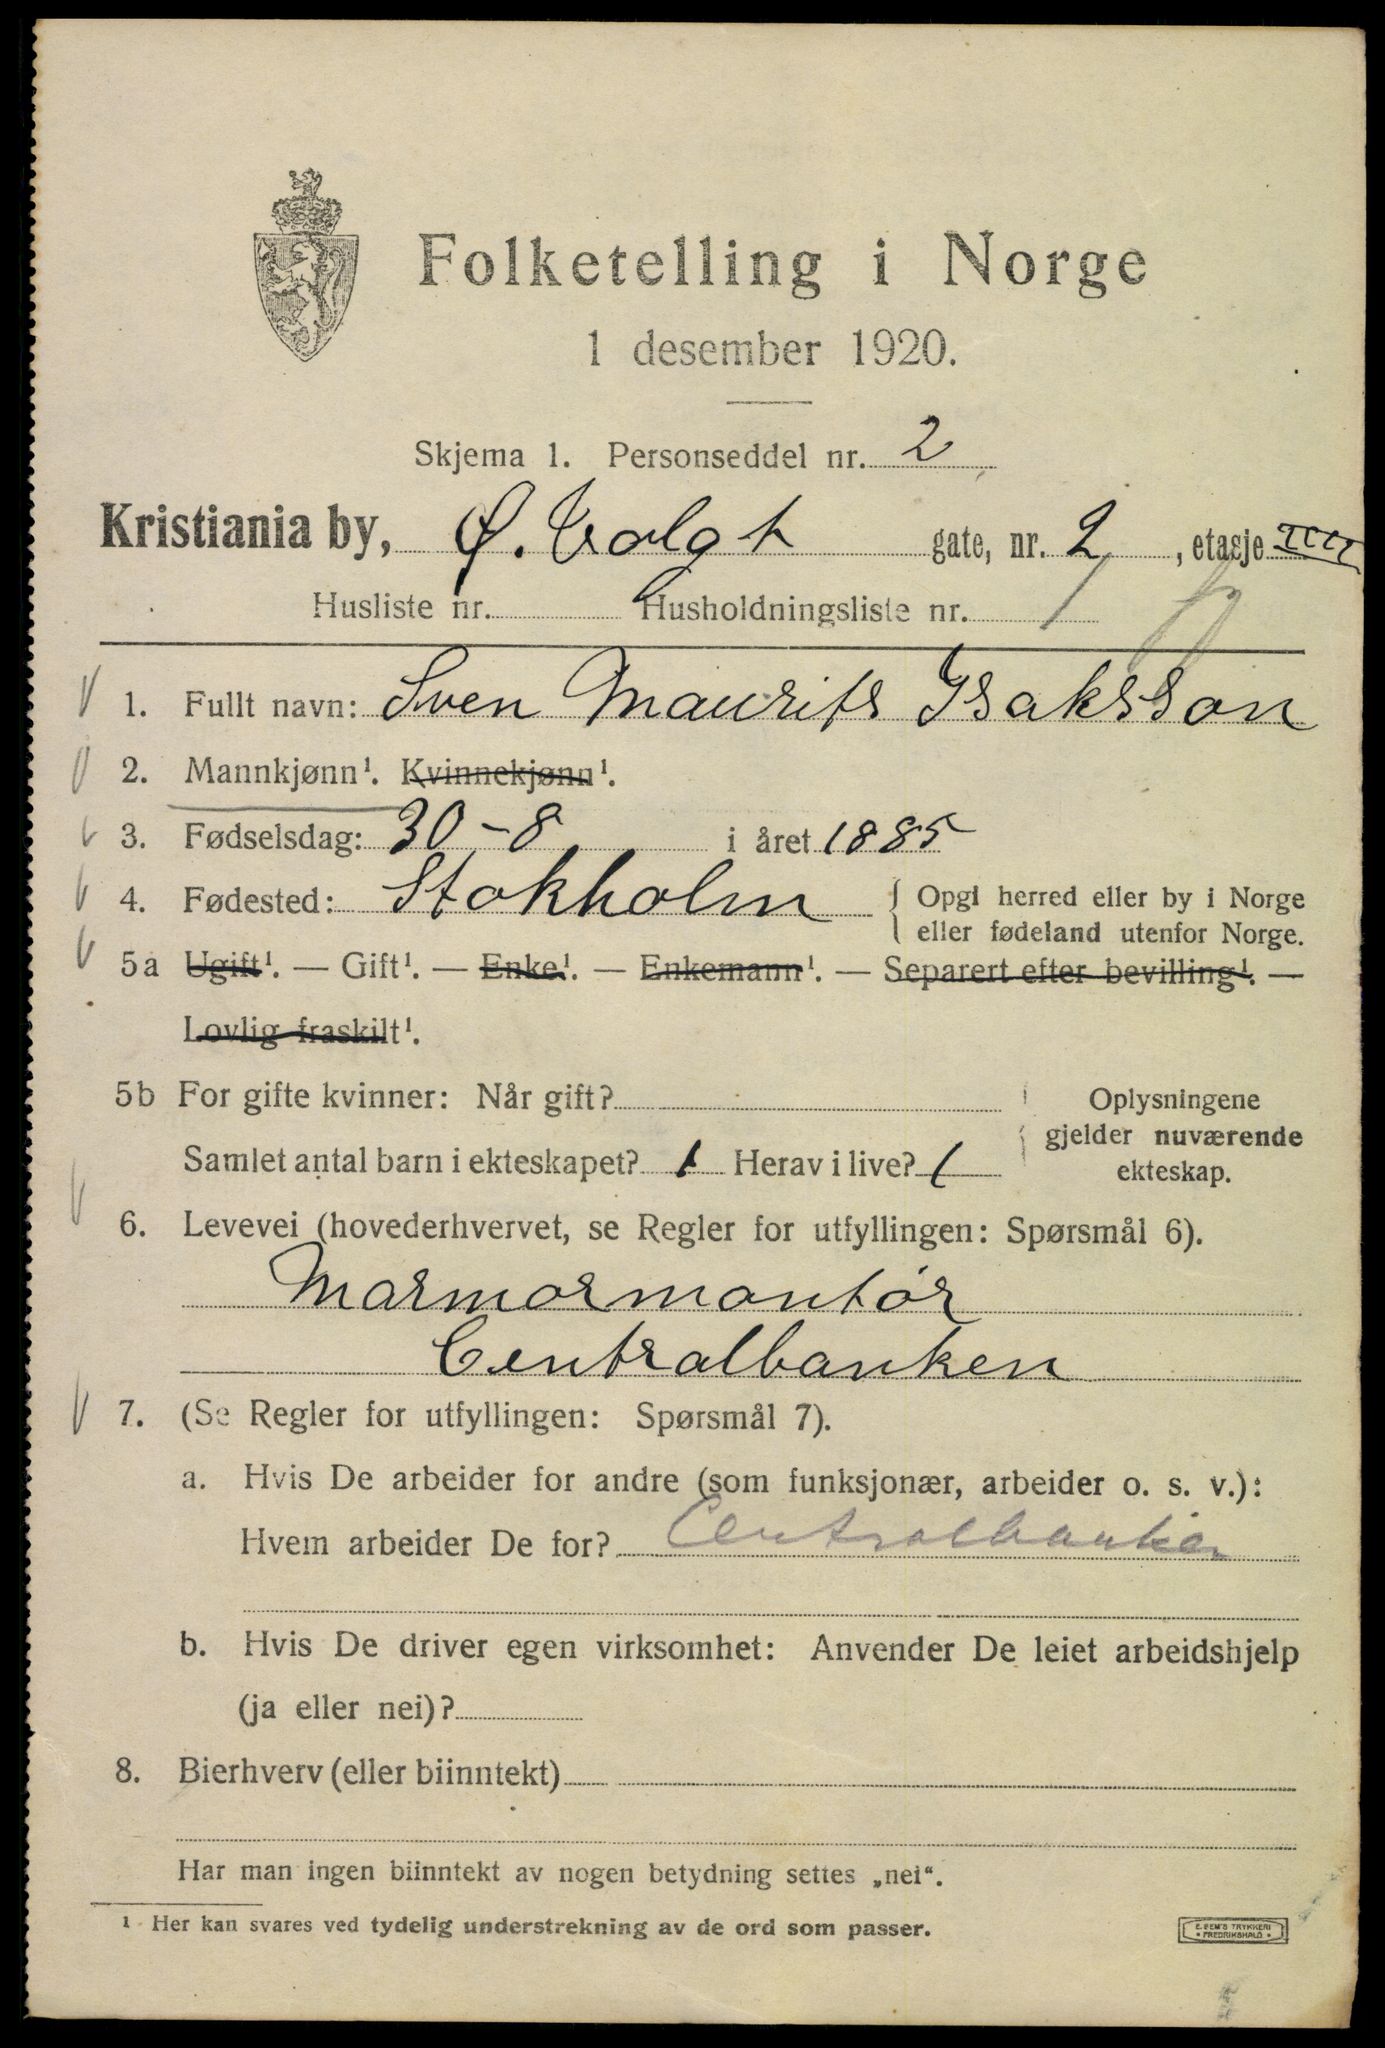 Folketelling i Norge
1 desember 1920.
Skjema 1. Personseddel nr. 2
Kristiania by, Ø. Volgt gate, nr. 2, etasje IIII
Husliste nr. Husholdningsliste nr. 1
1. Fullt navn: Sven Maurits Isaksson
2. Mannkjønn¹. Kvinnekjønn¹.
3. Fødselsdag: 30-8 i året 1885
4. Fødested: Stokholm { Opgi herred eller by i Norge
eller fødeland utenfor Norge.
5a Ugift¹. — Gift¹. — Enke¹. — Enkemann¹. — Separert efter bevilling¹. —
Lovlig fraskilt¹.
5b For gifte kvinner: Når gift? Oplysningene
gjelder nuværende
Samlet antal barn i ekteskapet? 1 Herav i live? 1 ekteskap.
6. Levevei (hovederhvervet, se Regler for utfyllingen: Spørsmål 6).
Marmormontör
Centralbanken
7. (Se Regler for utfyllingen: Spørsmål 7).
a. Hvis De arbeider for andre (som funksjonær, arbeider o. s. v.):
Hvem arbeider De for? Centralbanken
b. Hvis De driver egen virksomhet: Anvender De leiet arbeidshjelp
(ja eller nei)?
8. Bierhverv (eller biinntekt)
Har man ingen biinntekt av nogen betydning settes „nei“.
¹ Her kan svares ved tydelig understrekning av de ord som passer.
E. SEM'S TRYKKERI
• FREDRIKSHALD •